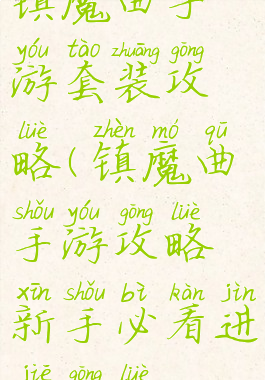 镇魔曲手
yóu tào zhuāng gōng
游套装攻
lüè zhèn mó qū
略(镇魔曲
shǒu yóu gōng lüè
手游攻略
xīn shǒu bì kàn jìn
新手必看进
jiē gōng lüè